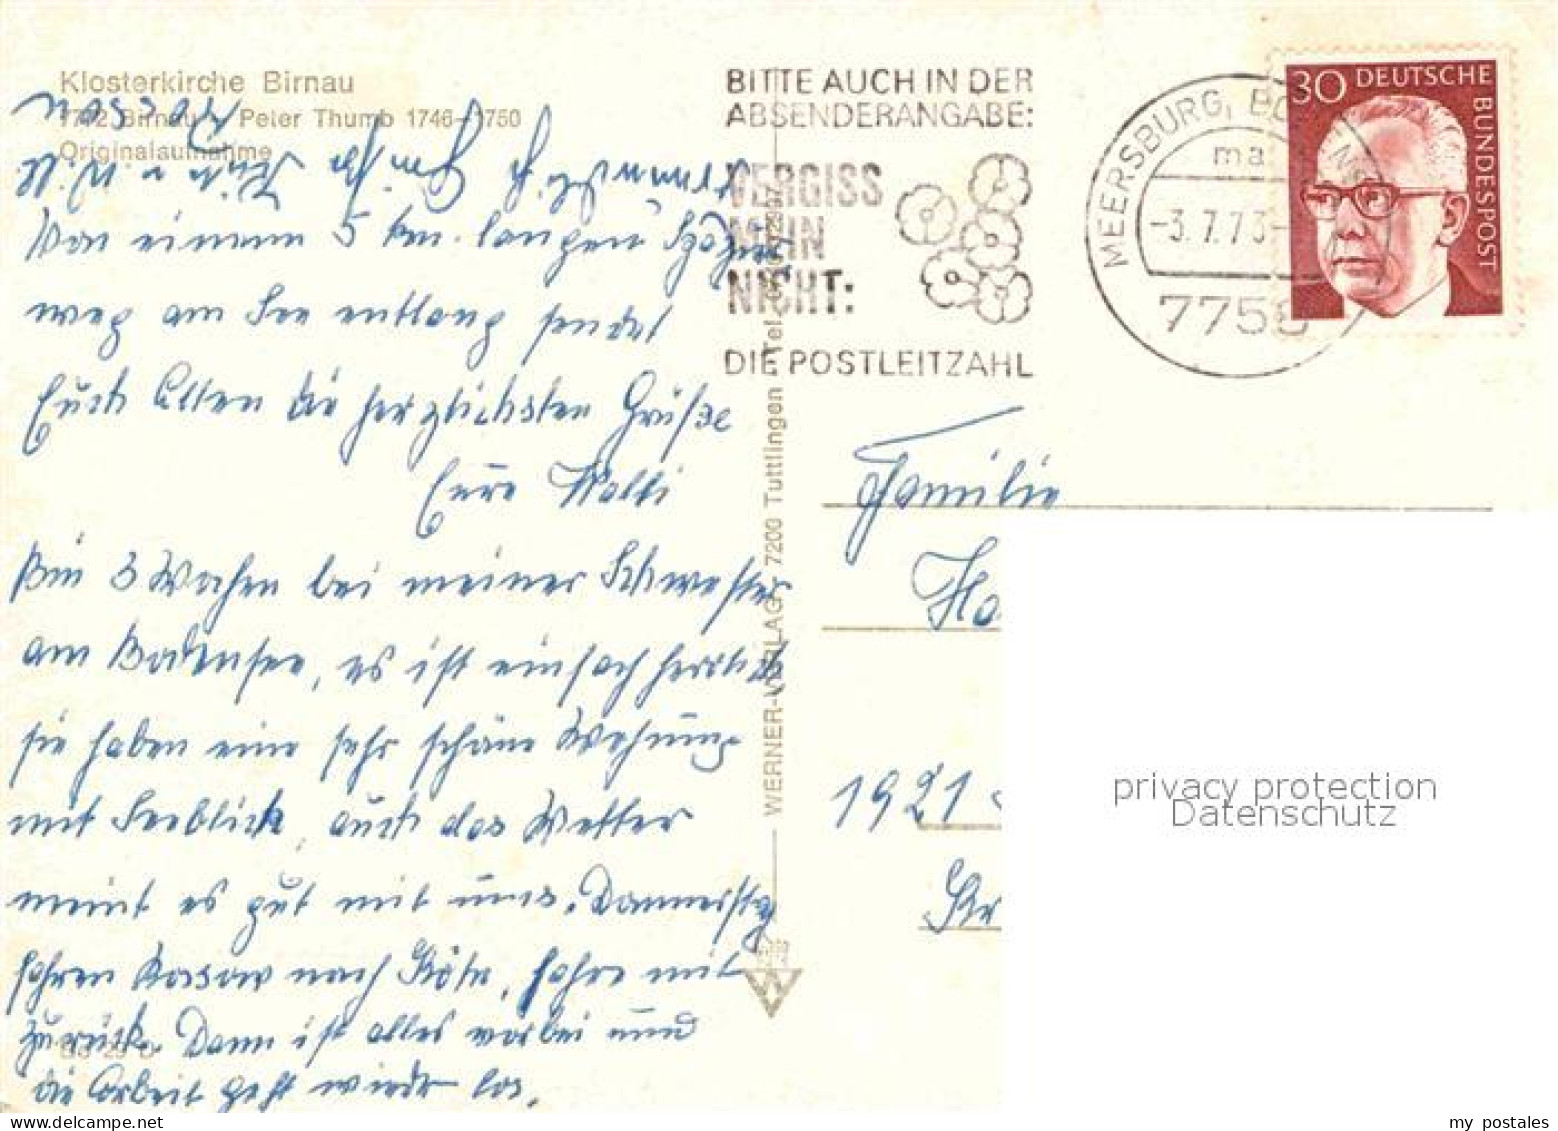 Klosterkirche Birnau
7742 Birnau - Peter Thumb 1746-1750
Originalaufnahme
Von einem 5 km. langen Spazier
weg am See entlang sendet
Euch Allen die herzlichsten Grüße
Eure Walli
Bin 3 Wochen bei meiner Schwester
am Bodensee, es ist einfach herrlich
sie haben eine sehr schöne Wohnung
mit Seeblick, auch das Wetter
meint es gut mit uns. Donnerstag
fahren nach fahre mit
zurück. Dann ist alles vorbei und
die Arbeit geht wieder los.
WERNER-VERLAG 7200 Tuttlingen Tel.
BITTE AUCH IN DER
ABSENDERANGABE:
VERGISS
MEIN
NICHT:
DIE POSTLEITZAHL
MEERSBURG, BODENSEE
ma
-3.7.73-
7758
30 DEUTSCHE BUNDESPOST
Familie
Ho
1921
Kr
privacy protection
Datenschutz
my postales